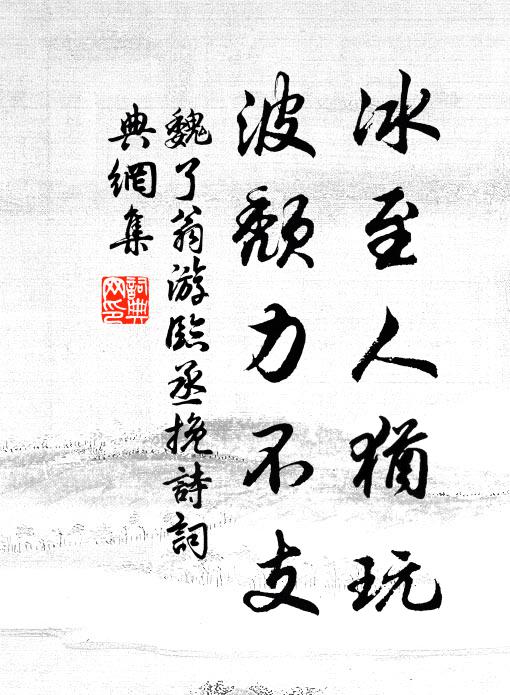 冰至人猶玩
波頹力不支
魏了翁游臨丞挽詩詞
典網集
詞典網印